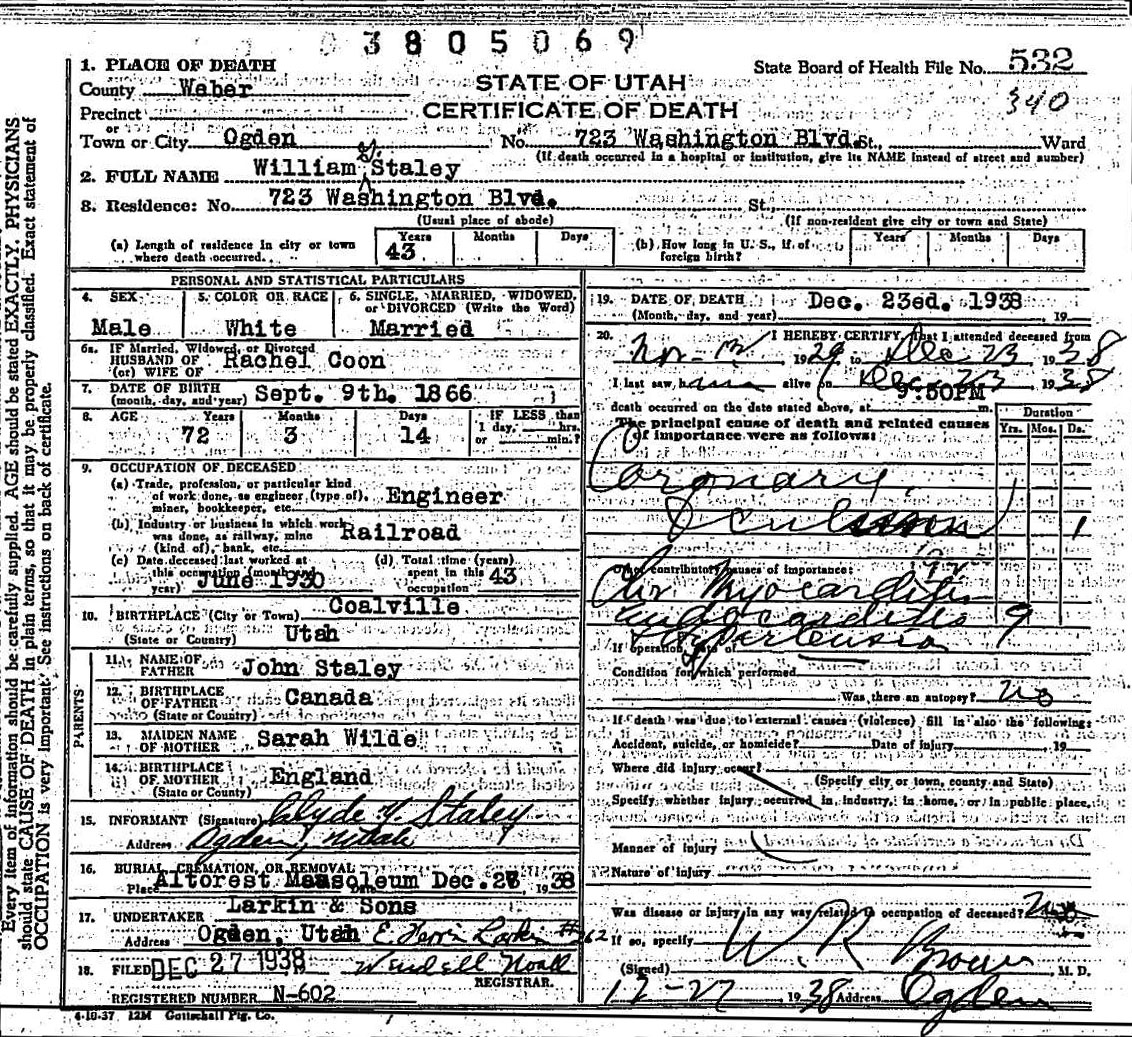 03805069
1. PLACE OF DEATH
State Board of Health File No. 532
County Weber
STATE OF UTAH
340
Precinct
CERTIFICATE OF DEATH
or
Town or City Ogden No. 723 Washington Blvd. St., Ward
(If death occurred in a hospital or institution, give its NAME instead of street and number)
2. FULL NAME William Staley
3. Residence: No. 723 Washington Blvd. St.,
(Usual place of abode) (If non-resident give city or town and State)
(a) Length of residence in city or town where death occurred. Years 43 Months Days
(b) How long in U. S., if of foreign birth? Years Months Days
PERSONAL AND STATISTICAL PARTICULARS
4. SEX Male
5. COLOR OR RACE White
6. SINGLE, MARRIED, WIDOWED, or DIVORCED (Write the Word) Married
6a. IF Married, Widowed, or Divorced
HUSBAND OF Rachel Coon
(or) WIFE OF
7. DATE OF BIRTH
(month, day, and year) Sept. 9th. 1866
8. AGE Years 72 Months 3 Days 14
IF LESS than 1 day, hrs. or min.?
9. OCCUPATION OF DECEASED
(a) Trade, profession, or particular kind of work done, as engineer (type of), miner, bookkeeper, etc. Engineer
(b) Industry or business in which work was done, as railway, mine (kind of), bank, etc. Railroad
(c) Date deceased last worked at this occupation (month and year) June 1930
(d) Total time (years) spent in this occupation 43
10. BIRTHPLACE (City or Town) Coalville
(State or Country) Utah
PARENTS
11. NAME OF FATHER John Staley
12. BIRTHPLACE OF FATHER Canada
(State or Country)
13. MAIDEN NAME OF MOTHER Sarah Wilde
14. BIRTHPLACE OF MOTHER England
(State or Country)
15. INFORMANT (Signature) Clyde Y. Staley
Address Ogden, Utah
16. BURIAL, CREMATION, OR REMOVAL
Place Altorest Mausoleum Dec. 1938
17. UNDERTAKER Larkin & Sons
Address Ogden, Utah Larkin #262
18. FILED DEC 27 1938 Wendell Noall
REGISTRAR.
REGISTERED NUMBER N-602
4-10-37 12M Gottschall Ptg. Co.
19. DATE OF DEATH Dec. 23ed. 1938
(Month, day, and year) 19
20. I HEREBY CERTIFY, that I attended deceased from
Nov- 1929 to Dec 23 1938
I last saw him alive on Dec 23 1938
death occurred on the date stated above, at 9:50PM m.
The principal cause of death and related causes of importance were as follows:
Duration
Yrs. Mos. Ds.
Coronary
Occlusion 1
Other contributory causes of importance:
Chr Myocarditis
Endocarditis 9
Hypertension
If operation, date of
Condition for which performed
Was there an autopsy? No
If death was due to external causes (violence) fill in also the following:
Accident, suicide, or homicide? Date of injury 19
Where did injury occur?
(Specify city or town, county and State)
Specify whether injury occurred in industry, in home, or in public place,
Manner of injury
Nature of injury
Was disease or injury in any way related to occupation of deceased? No
If so, specify
(Signed) W. R. Brown M. D.
12-27 1938 Address Ogden
Every item of information should be carefully supplied. AGE should be stated EXACTLY. PHYSICIANS
should state CAUSE OF DEATH in plain terms, so that it may be properly classified. Exact statement of
OCCUPATION is very important. See instructions on back of certificate.